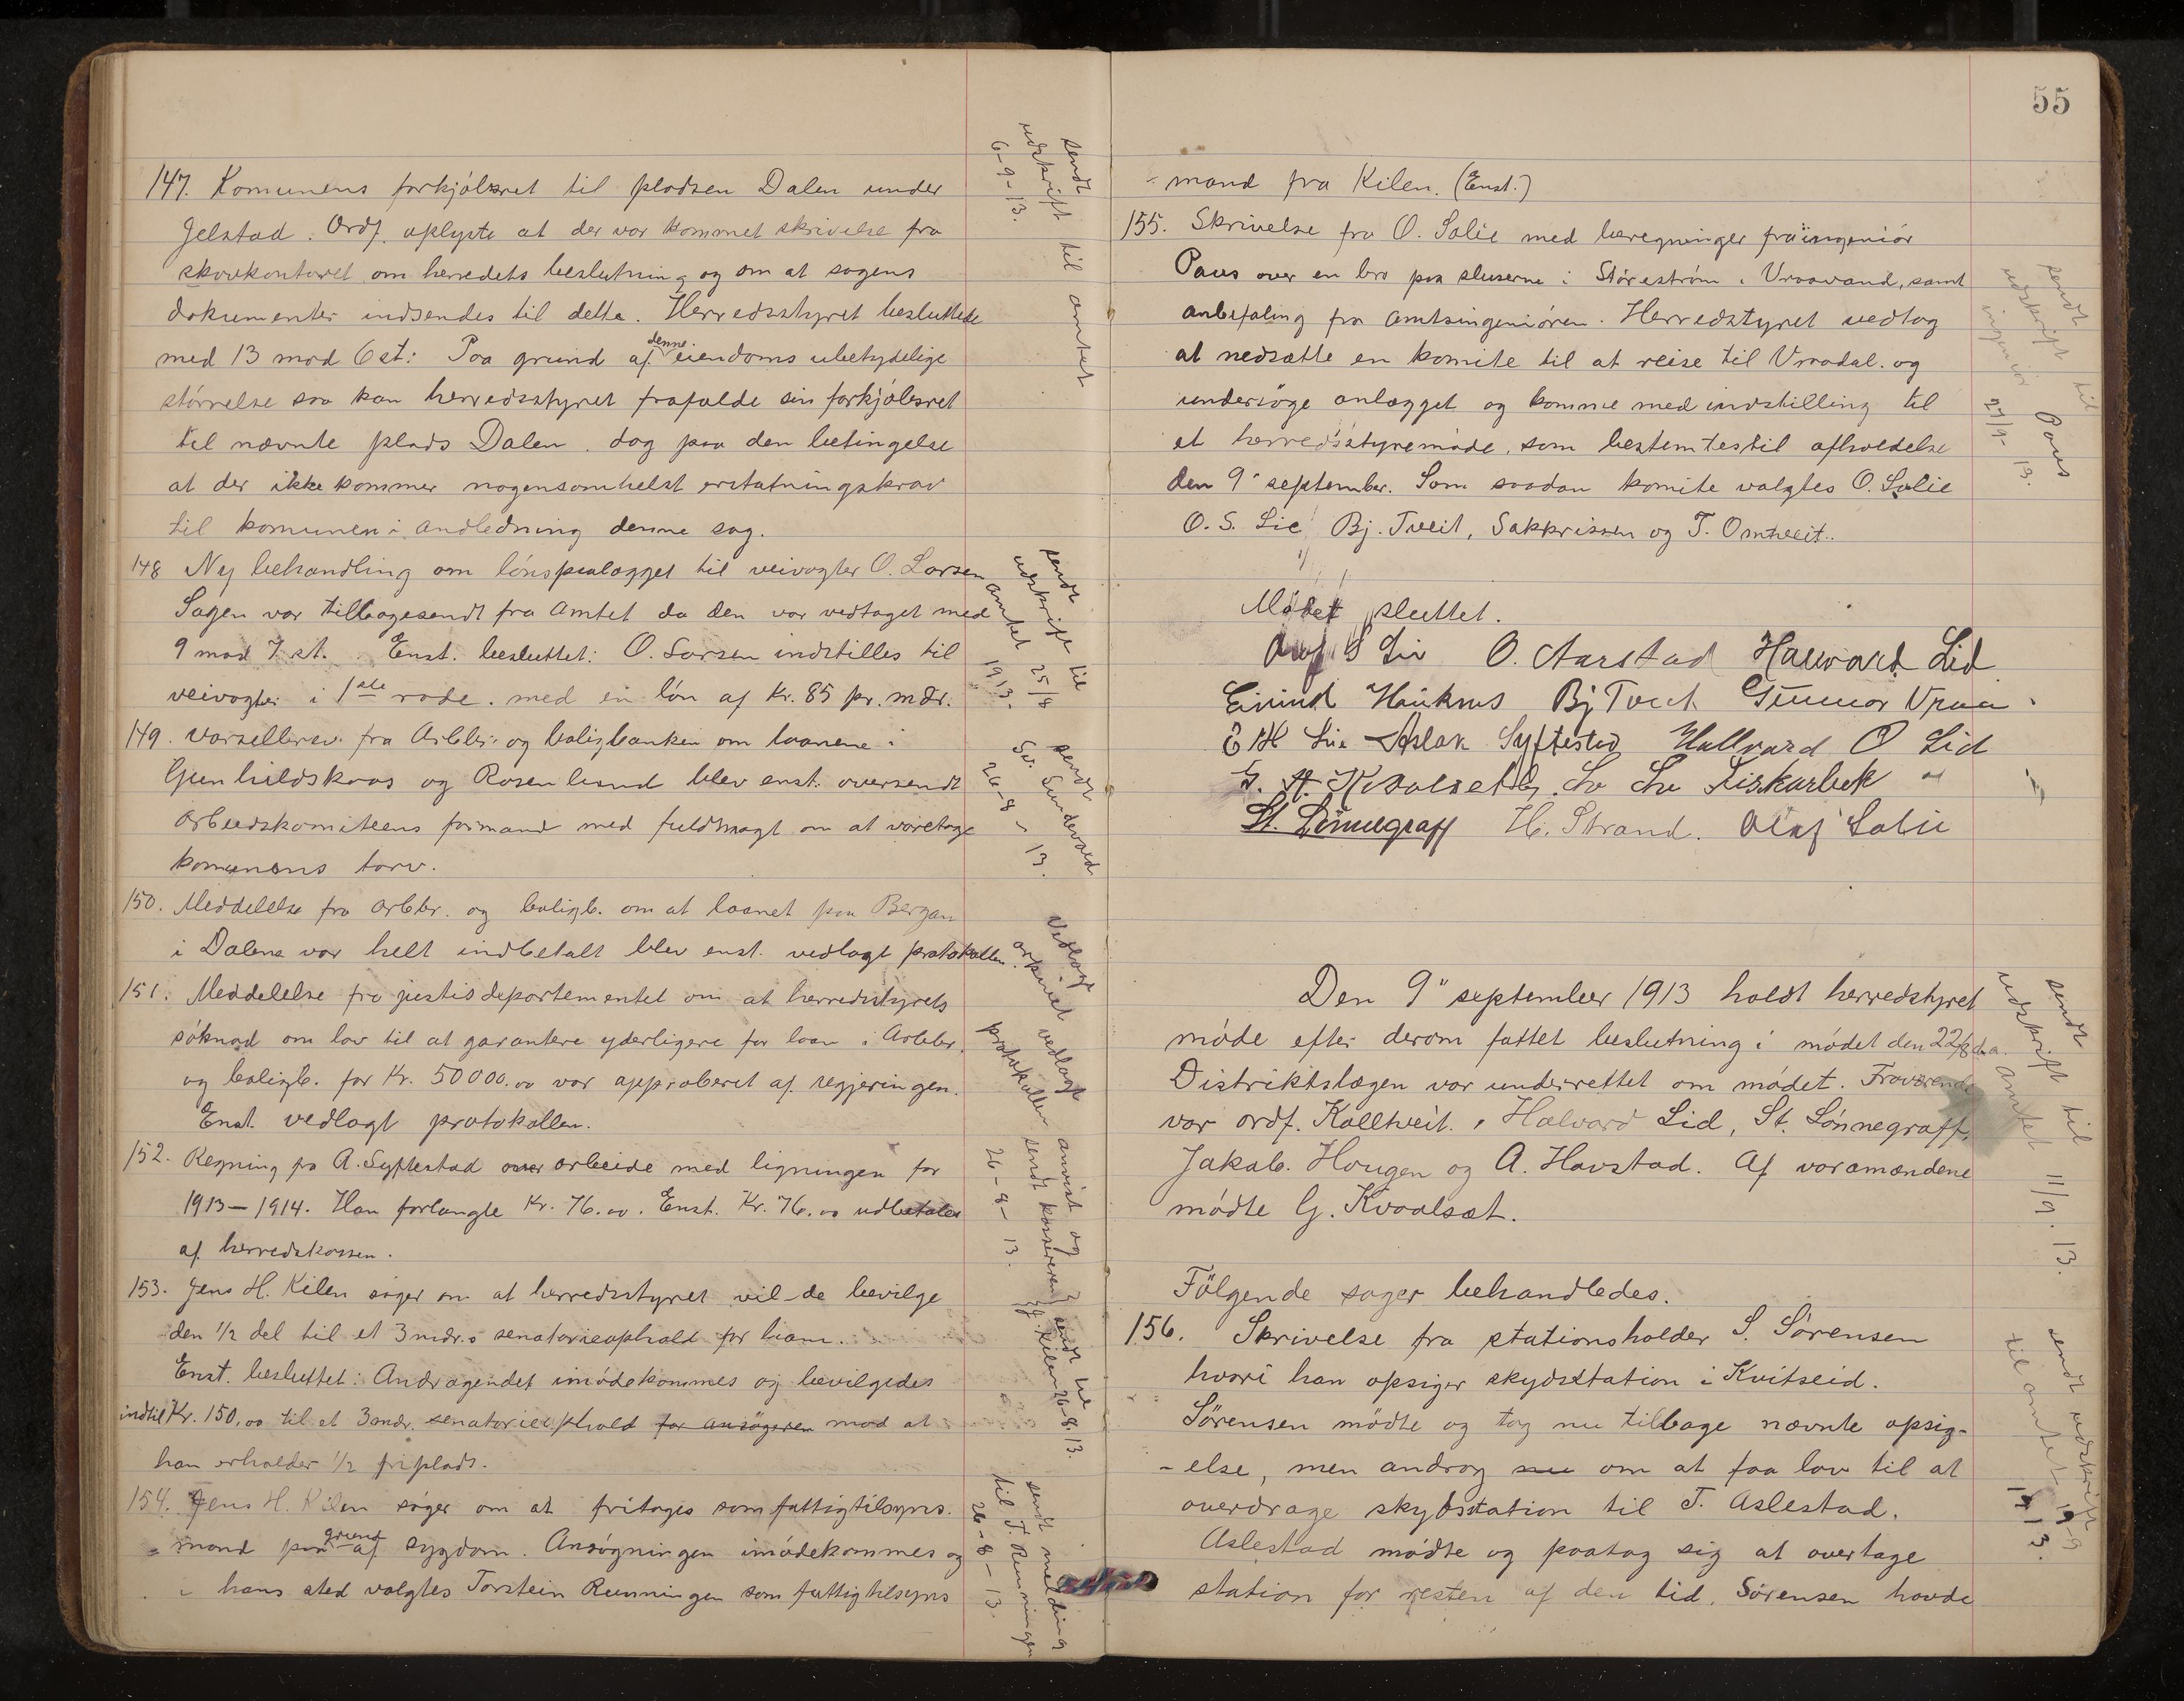 147. Komunens forkjólsret til pladsen Dalen under
Jelstad. Ordf. oplyste at der var kommet skrivelse fra
skovkontoret om herredets beslutning og om at sagens
dokumenter indsendes til dette. Herredsstyret besluttede
med 13 mod 6 st: Paa grund af denne eiendoms ubetydelige
størrelse saa kan herredsstyret frafalde sin forkjólsret
til nævnte plads Dalen. dog paa den betingelse
at der ikke kommer nogensomhelst erstatningskrav
til komunen i andledning denne sag.
148 Ny behandling om lónspaalægget til veivogter O. Larsen
Sagen var tilbagesendt fra Amtet da den var vedtaget med
9 mod 7 st. Enst. besluttet: O. Larsen indstilles til
veivogter i 1ste rode. med en lón af Kr. 85 pr. mdr.
149. varsellersv. fra Arbbr. og boligbanken om laanene i
Gunhildskaas og Rosenlund blev enst. oversendt
Arbeidskomiteens formand med fuldmagt om at varetage
komunens tarv.
150. Meddelelse fra arbbr. og boligb. om at laanet paa Bergan
i Dalene var helt indbetalt blev enst. vedlagt protokollen.
151. Meddelelse fra justisdepartementet om at herredsstyrets
sóknad om lov til at garantere yderligere for laan i Arbbr.
og boligb. for Kr. 50000.00 var approberet af regjeringen.
Enst. vedlagt protokollen.
152. Regning fra A. Syftestad over arbeide med ligningen for
1913–1914. Han forlangte Kr. 76.00. Enst. Kr. 76.00 udbetales
af herredskassen.
153. Jens H. Kilen sóger om at herredsstyret vil de bevilge
den 1/2 del til et 3 mdr.s senatorieophold for ham.
Enst. besluttet: Andragendet imódekommes og bevilgedes
indtil Kr. 150.00 til et 3 mdr. senatorieophold for ansógeren mod at
han erholder 1/2 friplads.
154. Jens H. Kilen sóger om at fritages som fattigtilsyns-
-mand paa grund af sygdom. Ansógningen imódekommes og
i hans sted valgtes Torstein Runningen som fattigtilsyns
sendt udskrift til amtet
6-9-13.
sendt udskrift til
Amtet 25/8
1913.
sendt
Sv. Sundevald
26-8-13.
Vedlagt
arkivet
vedlagt
protokollen
anvist og
sendt kassereren
26-8-13.
sendt til
J. Kilen 26-8.13.
sendt melding
til T. Runningen
26-8-13.
55
-mand fra Kilen. (Enst.)
155. Skrivelse fra O. Salie med beregninger fra ingeniór
Paus over en bro paa sluserne i Stórestróm i Vraavand, samt
anbefaling fra amtsingenióren. Herredstyret vedtog
at nedsætte en komite til at reise til Vraadal. og
undersóge anlægget og komme med indstilling til
et herredsstyremóde, som bestemtes til afholdelse
den 9" september. Som saadan komite valgtes O. Salie
O. S. Lie Bj. Tveit, Sakkrissen og T. Omtveit.
Módet sluttet.
Olaf S Lie O. Aarstad Halvard Lid
Eivind Haukrus Bj Tveit Gunnar Vraa
E H Lie Aslak Syftestad Hallvard O Lid
G. A. Kvaalset Liskarbek
St. Lónnegraff H. Strand. Olaf Salie
sendt udskrift til
ingeniór Paus
27/9-13.
Den 9" september 1913 holdt herredstyret
móde efter derom fattet beslutning i módet den 22/8 d.a.
Distriktslægen var underrettet om módet. Fraværende
var ordf. Kolltveit. Halvard Lid, St. Lónnegraff,
Jakob. Hougen og A. Havstad. Af varamændene
módte G. Kvaalset.
sendt
udskrift til
Amtet 11/9.13.
Fölgende sager behandledes.
156. Skrivelse fra stationsholder S. Sórensen
hvori han opsiger skydsstation i Kvitseid.
Sörensen módte og tog nu tilbage nævnte opsig-
-else, men androg om at faa lov til at
overdrage skydsstation til T. Aslestad.
Aslestad módte og paatog sig at overtage
station for resten af den tid, Sórensen havde
sendt udskrift
til amtet 19-9
1913.